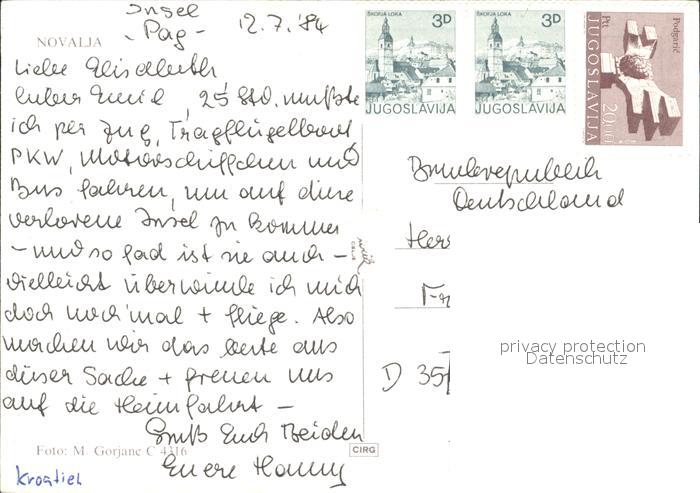 Insel
- Pag -
12.7.'84
NOVALJA
Liebe Elisabeth
lieber Emil, 25 Std. mußte
ich per Zug, Tragflügelboot
PKW, Motorschiffchen und
Bus fahren, um auf diese
verlorene Insel zu kommen
- und so fad ist sie auch -
vielleicht überwinde ich mich
doch noch'mal + fliege. Also
machen wir das beste aus
dieser Sache + freuen uns
auf die Heimfahrt -
Gruß Euch Beiden
Euere Hanny
Foto: M. Gorjanc C 4316
CIRG
Kroatien
ŠKOFJA LOKA
3D
JUGOSLAVIJA
ŠKOFJA LOKA
3D
JUGOSLAVIJA
Podgarić
Ptt
JUGOSLAVIJA
20.00
Bundesrepublik
Deutschland
Herr
D 35
privacy protection
Datenschutz